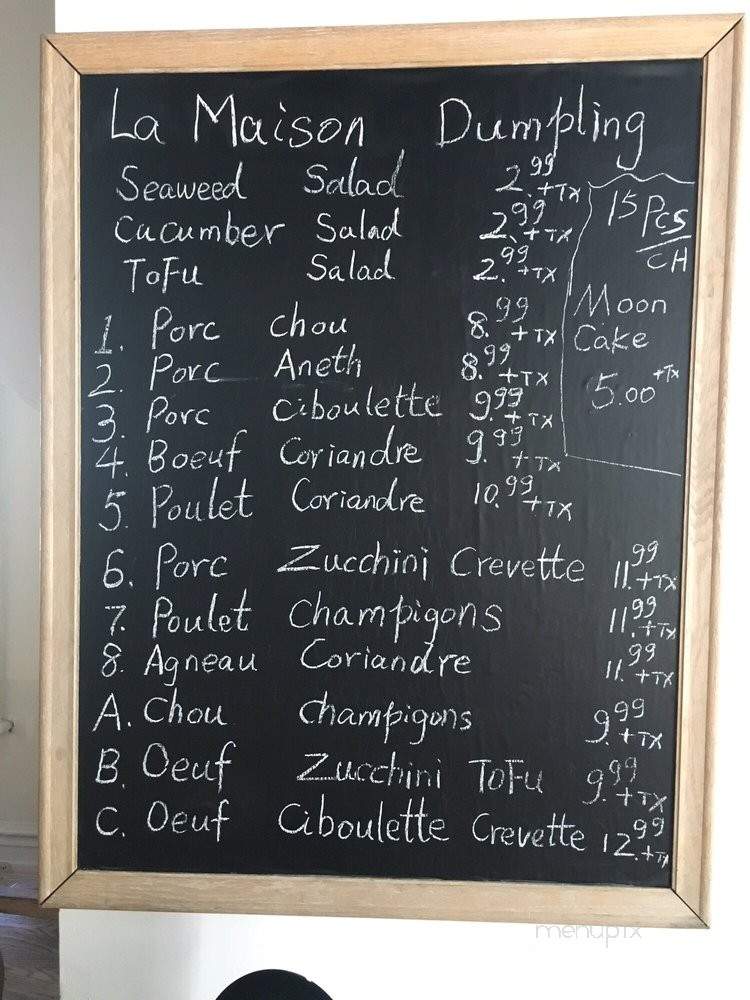 La Maison Dumpling
Seaweed Salad 2.99 +TX
Cucumber Salad 2.99 +TX
ToFu Salad 2.99 +TX
15 Pcs
CH
Moon
Cake
5.00 +TX
1. Porc chou 8.99 +TX
2. Porc Aneth 8.99 +TX
3. Porc Ciboulette 9.99 +TX
4. Boeuf Coriandre 9.99 +TX
5. Poulet Coriandre 10.99 +TX
6. Porc Zucchini Crevette 11.99 +TX
7. Poulet Champigons 11.99 +TX
8. Agneau Coriandre 11.99 +TX
A. Chou Champigons 9.99 +TX
B. Oeuf Zucchini ToFu 9.99 +TX
C. Oeuf Ciboulette Crevette 12.99 +TX
menupix